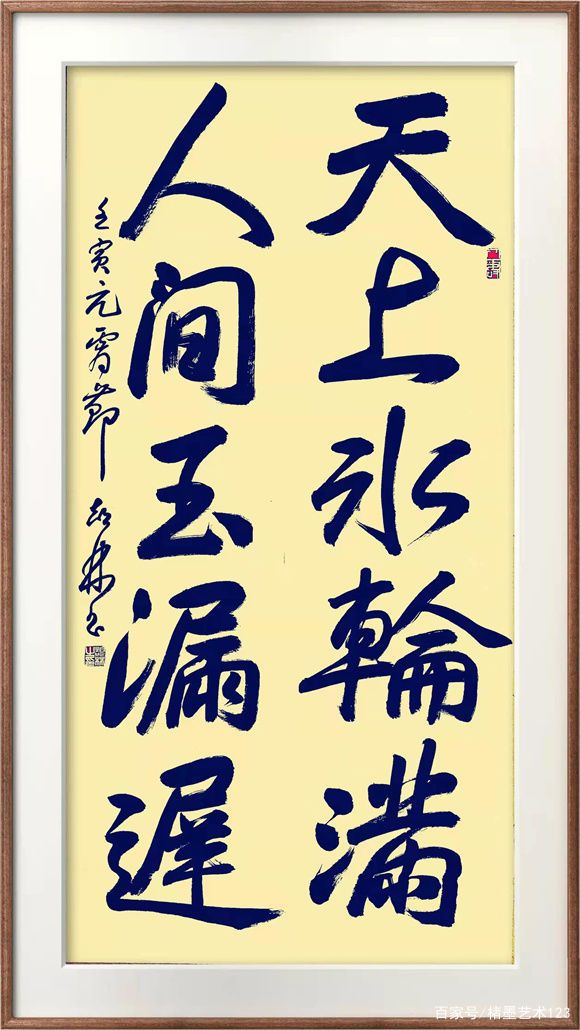 天上冰輪滿
人间玉漏遲
壬寅元宵節 紹林书
百家号/楮墨艺术123